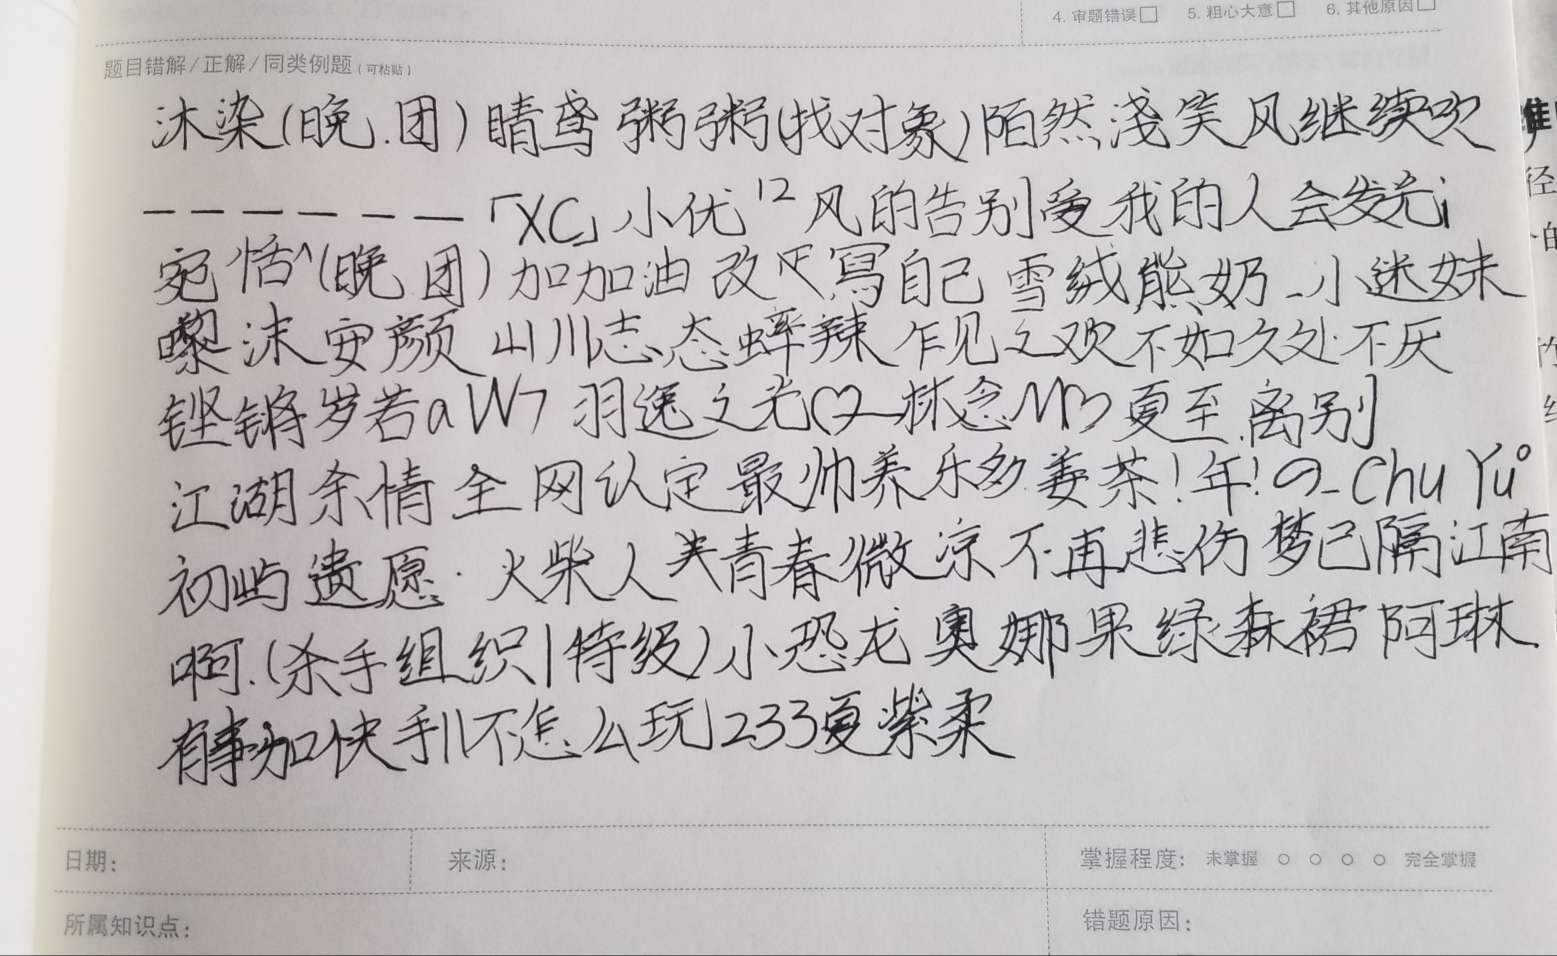 4. 审题错误□ 5. 粗心大意□ 6. 其他原因□
题目错解/正解/同类例题(可粘贴)
沐染(晚.团)晴鸢 粥粥(找对象)陌然浅笑 风继续吹
- - - - - - -「XC」小优¹² 风的告别 爱我的人会发光i
宛恬^(晚.团)加加油 改尺寫自己 雪绒熊奶-小迷妹
嚟沫安颜 山川志态 蟀辣 乍见之欢不如久处不厌
铿锵岁若aW7 羽逸之光 林念M 夏至.离别
江湖余情 全网认定最帅养乐多 姜茶!年!の-Chu Yu°
初屿遗愿· 火柴人 关青春微凉不再悲伤 梦已隔江南
啊.(杀手组织|特级)小恐龙 奥娜果绿 森裙 阿琳
有事加快手 不怎么玩1233夏紫柔
日期: 来源: 掌握程度: 未掌握 ○ ○ ○ ○ 完全掌握
所属知识点: 错题原因: